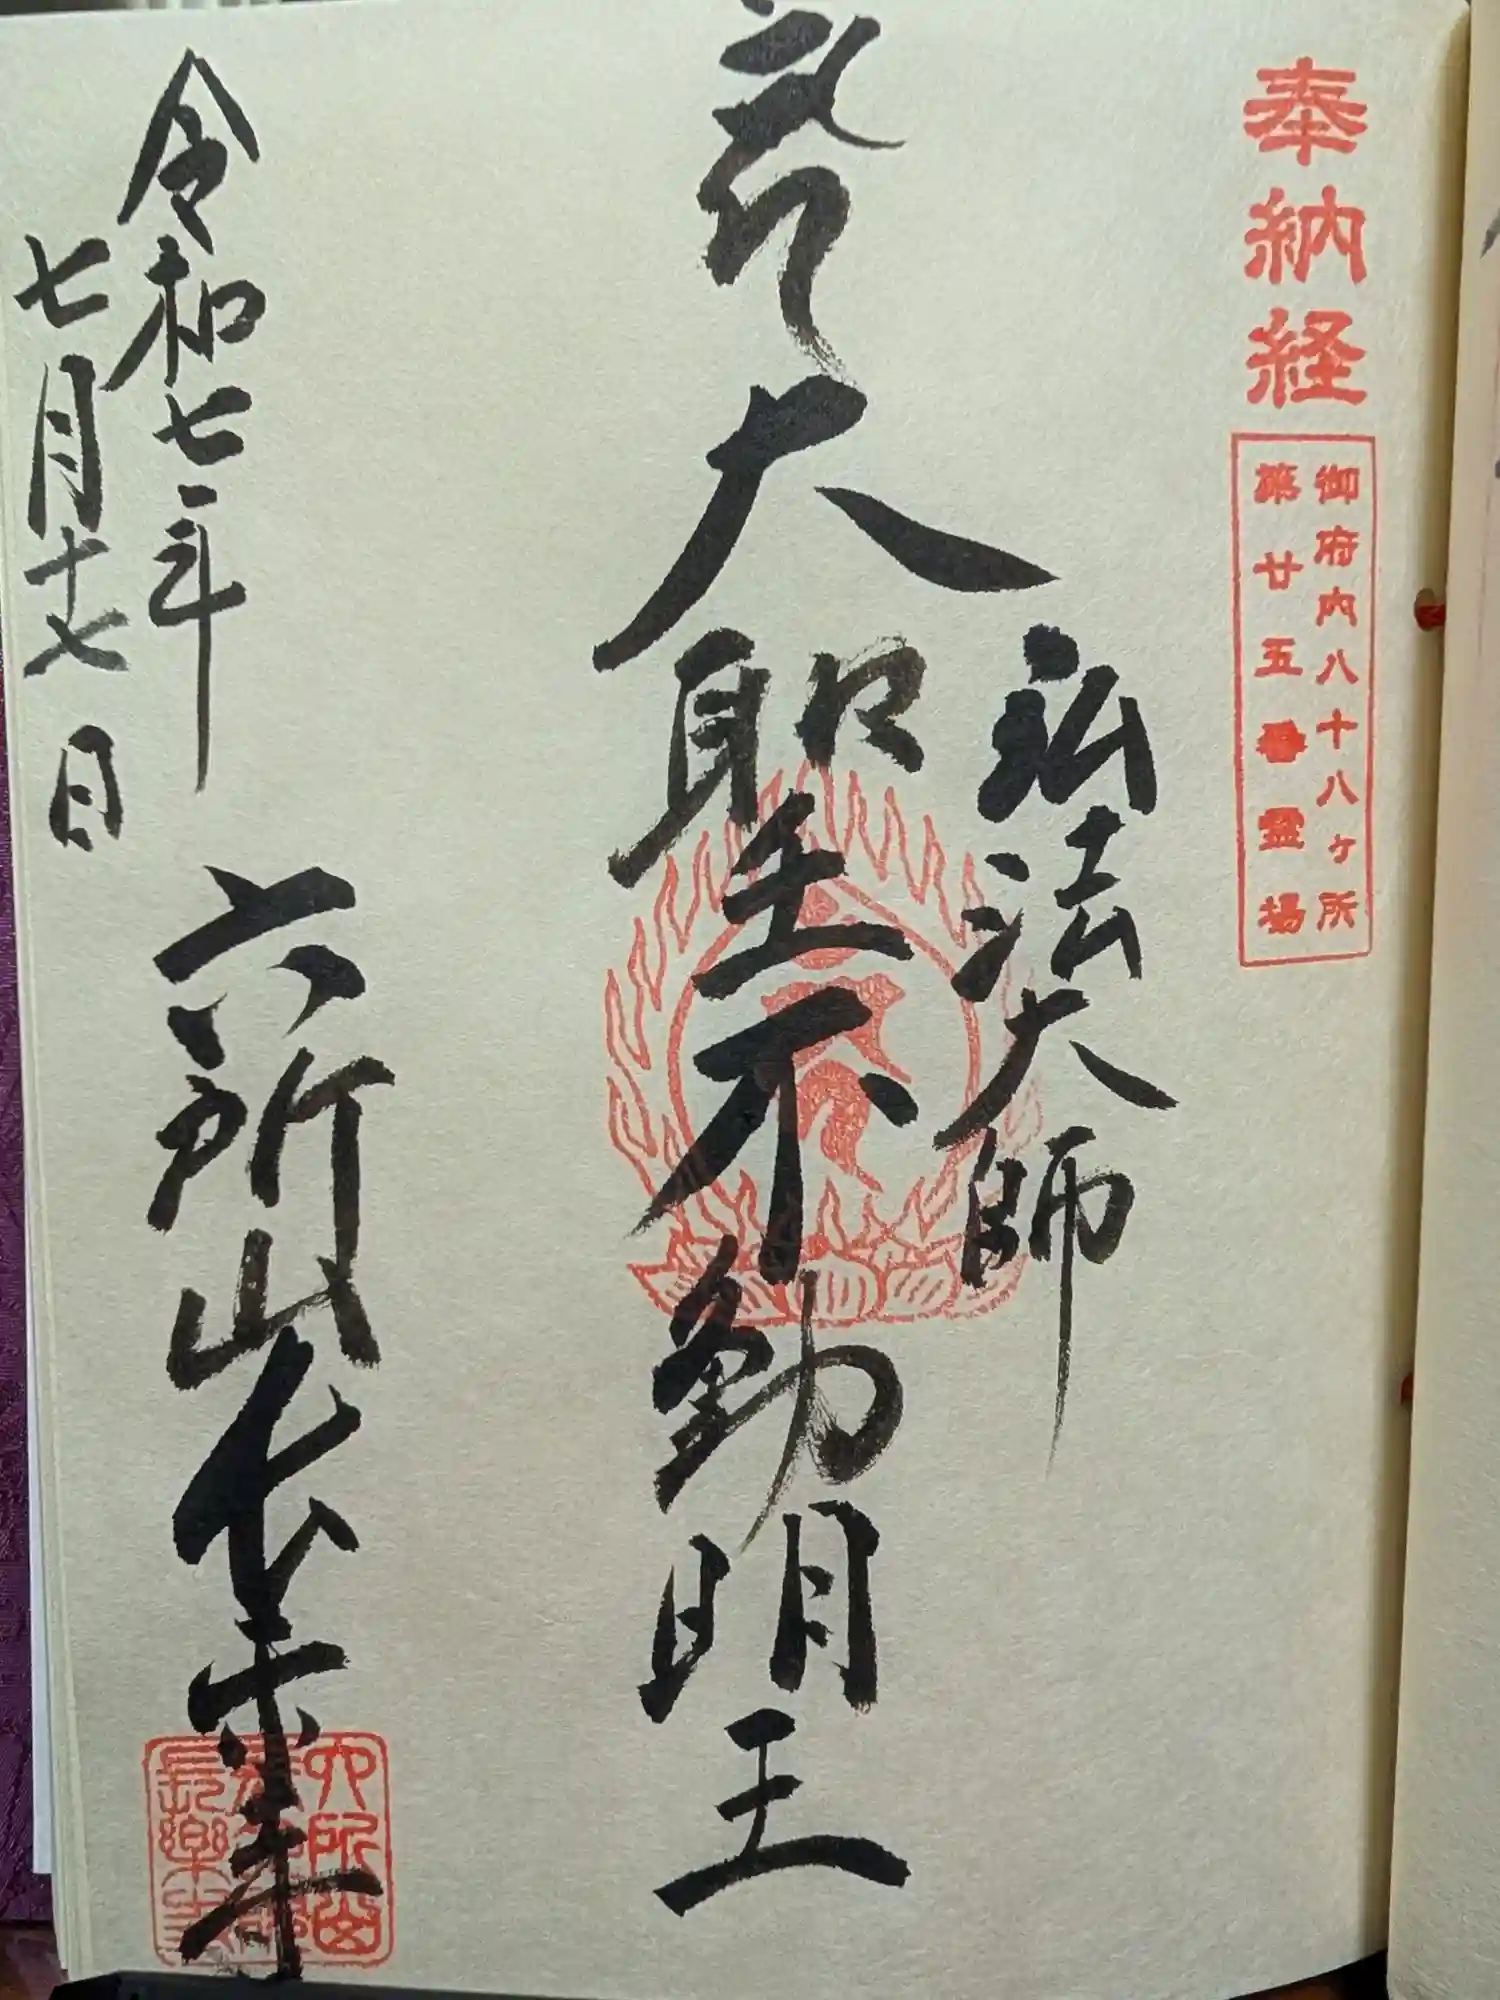 奉納経
御府内八十八ヶ所
第廿五番霊場
弘法大師
大聖不動明王
令和七年
七月十七日
六所山長楽寺
六所山
長樂寺